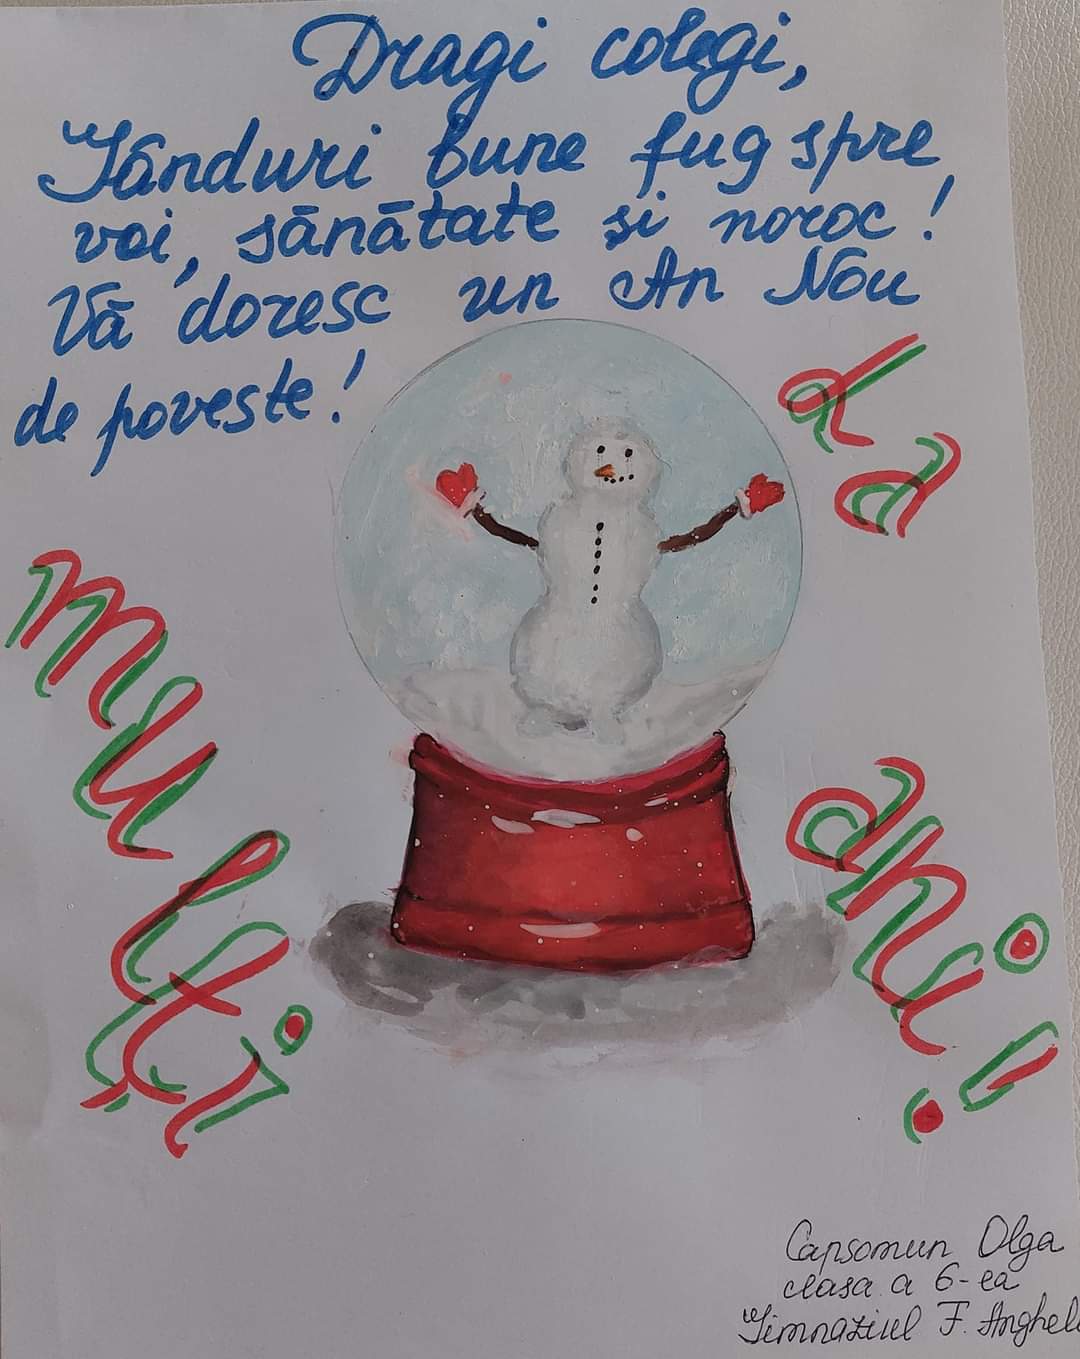 Dragi colegi,
Gânduri bune fug spre
voi, sănătate și noroc!
Vă doresc un An Nou
de poveste!
La
mulți
ani!
Capsomun Olga
clasa a 6-ea
Gimnaziul F. Anghel